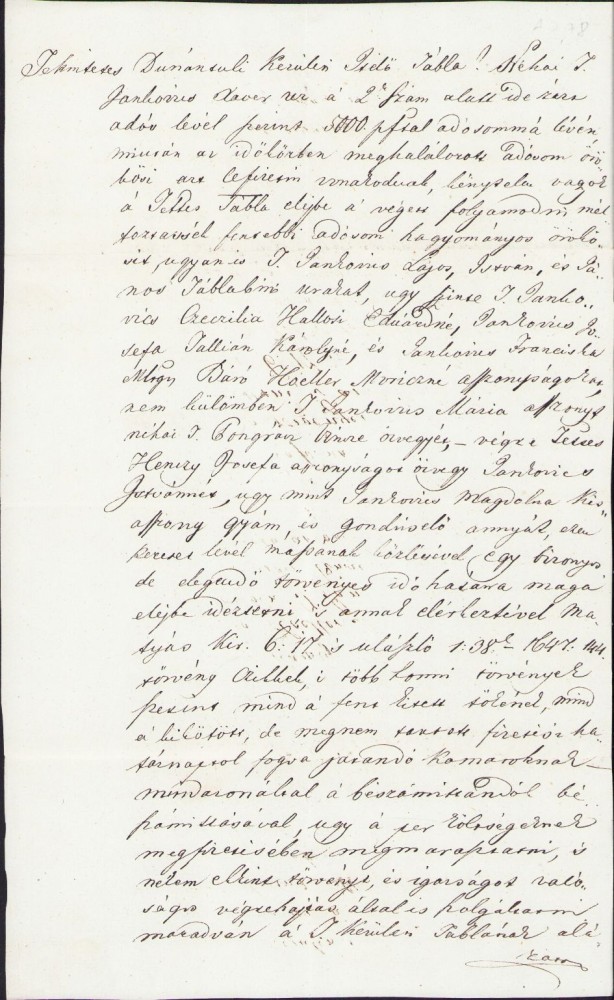 Tekintetes Dunántuli Kerületi Itélő Tábla! Néhai T.
Jankovics Xaver ur á 2ik Szám alatt ide zárt
adós levél szerint 5000 pfttal adósommá lévén,
miután az időközben meghalálozott adósom örö-
kösei azt lefizetni vonakodnak, kénytelen vagyok
á Tettes Tábla elejbe á végett folyamodni, mél-
toztassék fentebbi adósom hagyományos örökö-
seit, ugyan is T. Jankovics Lajos, István, és Já-
nos Táblabiró urakat, ugy szinte T. Janko-
vics Czeczilia Hallosi Eduárdné, Jankovics Jo-
sefa Tallián Károlyné, és Jankovics Franciska
Mlgu Báró Hoeller Moriczné asszonyságokat,
nem külömben T. Jankovics Mária asszonyt
néhai T. Pongrácz Vincze özvegyét, – végre Tettes
Henczy Josefa asszonyságot özvegy Jankovics
Istvánnét, ugy mint Jankovics Magdolna kis-
asszony gyám, és gondviselő annyát, ezen
kereset levél mássának közlésével egy bizonyos
de elegendő törvényes idő határra maga
elejbe idéztetni is annak elérkeztével Ma-
tyás Kir. 6: 17. és ulászló 1: 38ik 1647: 144
törvény Czikkek, s több honni törvények
szerint mind á fent kitett tőkének, mind
á kikötött, de megnem tartott fizetési ha-
tárnaptol fogva járandó kamatoknak –
mindazonáltal á bészámittandók bé-
számittásával, ugy á per költségeknek
megfizetésében megmarasztatni, s
nékem ekkint törvényt, és igazságot való-
ságos végrehajtás által is szolgáltatni
maradván á T. Kerületi Táblának alá-
zatos